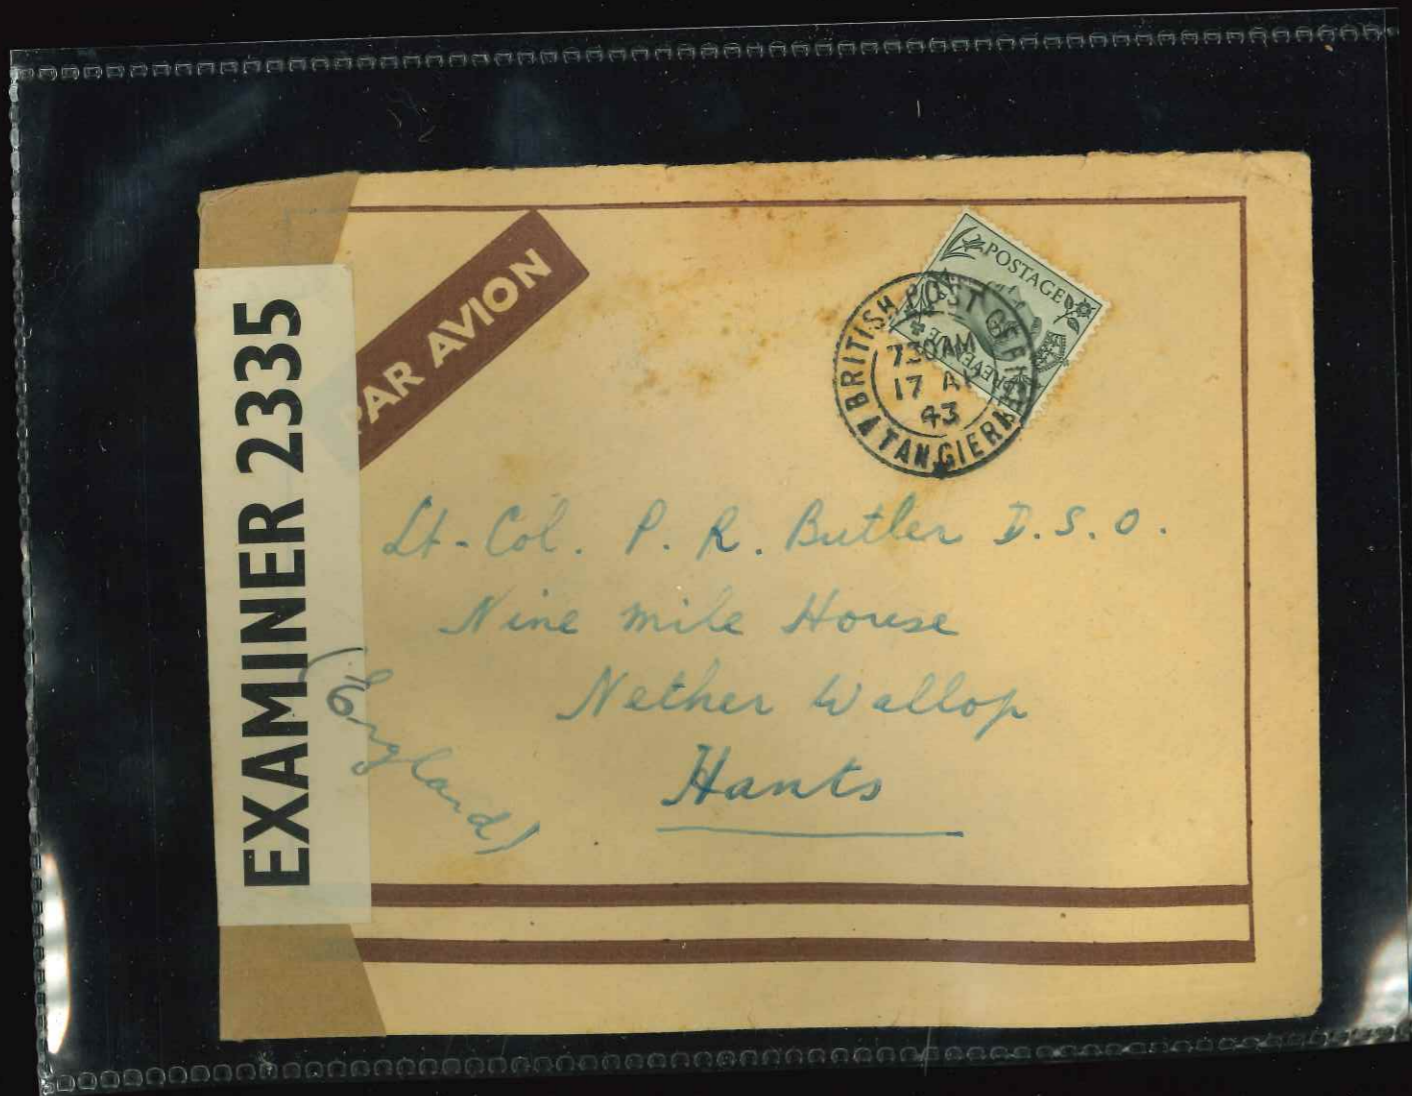 EXAMINER 2335
PAR AVION
POSTAGE
REVENUE
BRITISH POST OFFICE
730AM
17 AU
43
TANGIER
Lt-Col. P. R. Butler D.S.O.
Nine mile House
Nether Wallop
Hants
(England)